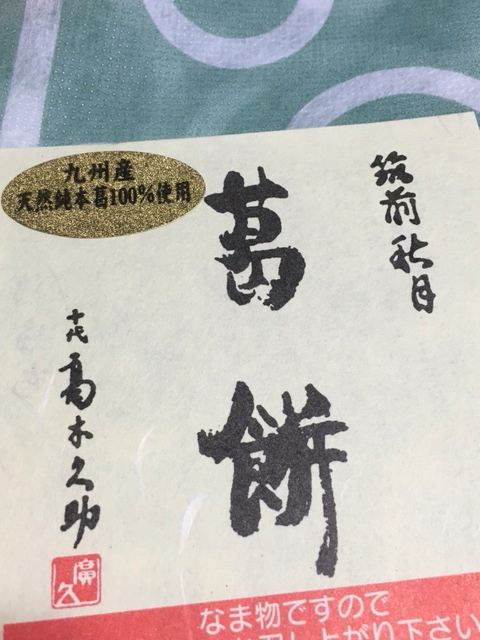 筑前秋月
葛餅
九州産
天然純本葛100%使用
十代 高木久助
廣久
なま物ですので
召し上がり下さい